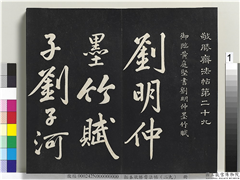 敬勝齋法帖第二十九
御臨黃庭堅書劉明仲墨竹賦
劉明仲
墨竹賦
子劉子河